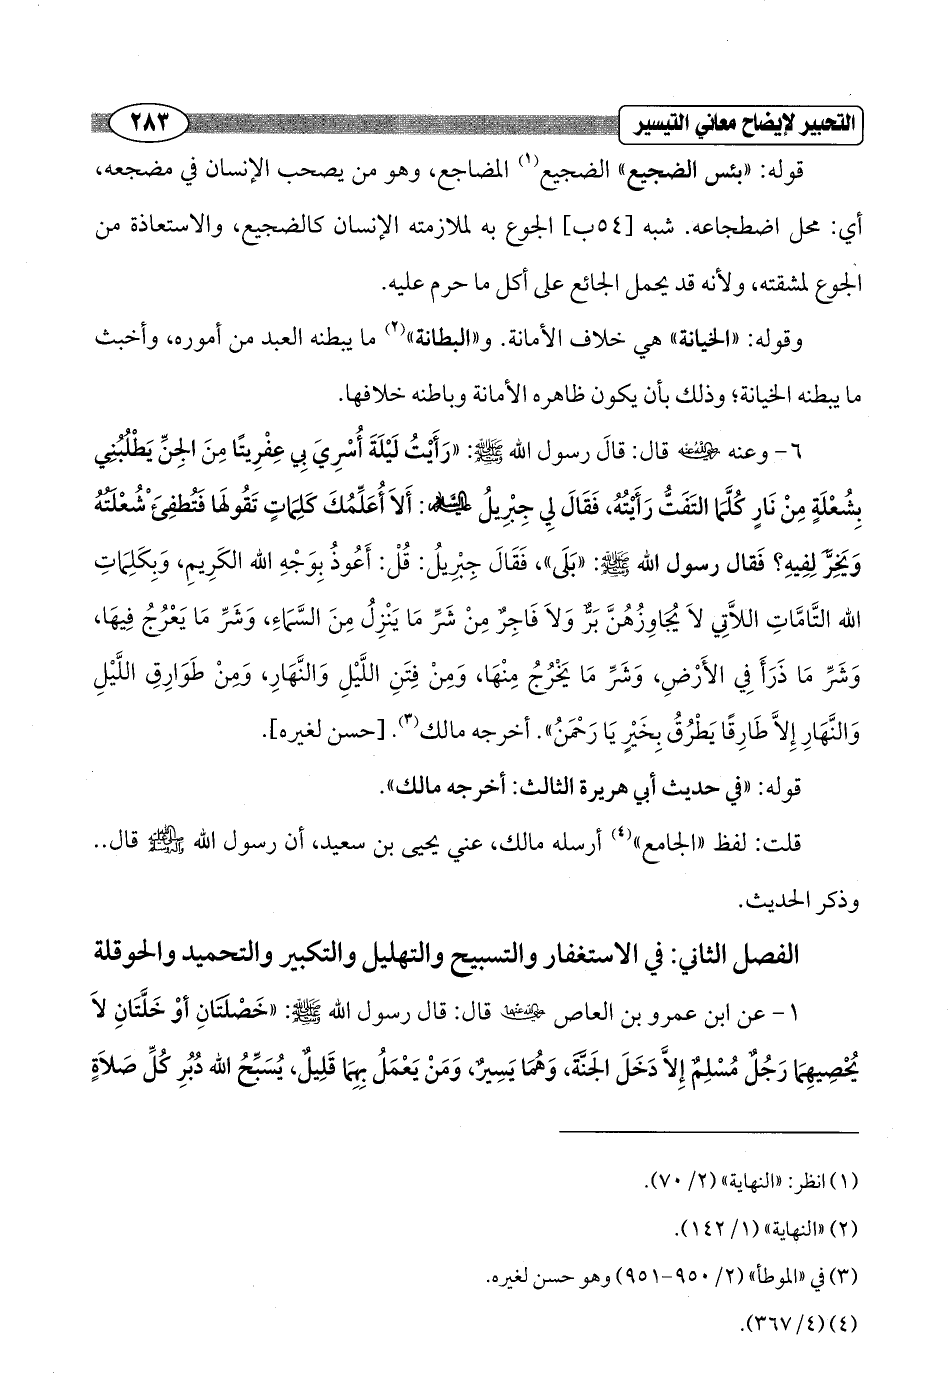 التحبير لإيضاح معاني التيسير ٢٨٣
قوله: «بئس الضجيع» الضجيع(١) المضاجع، وهو من يصحب الإنسان في مضجعه،
أي: محل اضطجاعه. شبه [٥٤ب] الجوع به لملازمته الإنسان كالضجيع، والاستعاذة من
الجوع لمشقته، ولأنه قد يحمل الجائع على أكل ما حرم عليه.
وقوله: «الخيانة» هي خلاف الأمانة. و«البطانة»(٢) ما يبطنه العبد من أموره، وأخبث
ما يبطنه الخيانة؛ وذلك بأن يكون ظاهره الأمانة وباطنه خلافها.
٦- وعنه رضي الله عنه قال: قَالَ رسول الله ﷺ: «رَأَيْتُ لَيْلَةَ أُسْرِيَ بِي عِفْرِيتًا مِنَ الجِنِّ يَطْلُبُنِي
بِشُعْلَةٍ مِنْ نَارٍ كُلَّمَا التَفَتُّ رَأَيْتُهُ، فَقَالَ لِي جِبْرِيلُ عليه السلام: أَلاَ أُعَلِّمُكَ كَلِمَاتٍ تَقُولهَا فَتُطفِئَ شُعْلَتُهُ
وَيَخِرَّ لِفِيهِ؟ فَقال رسول الله ﷺ: «بَلَى»، فَقَالَ جِبْرِيلُ: قُلْ: أَعُوذُ بِوَجْهِ الله الكَرِيمِ، وَبِكَلِمَاتِ
الله التَّامَّاتِ اللاَّتِي لاَ يُجَاوِزُهُنَّ بَرٌّ وَلاَ فَاجِرٌ مِنْ شَرِّ مَا يَنْزِلُ مِنَ السَّمَاءِ، وَشَرِّ مَا يَعْرُجُ فِيهَا،
وَشَرِّ مَا ذَرَأَ فِي الأَرْضِ، وَشَرِّ مَا يَخْرُجُ مِنْهَا، وَمِنْ فِتَنِ اللَّيْلِ وَالنَّهَارِ، وَمِنْ طَوَارِقِ اللَّيْلِ
وَالنَّهَارِ إِلاَّ طَارِقًا يَطْرُقُ بِخَيْرٍ يَا رَحْمَنُ». أخرجه مالك(٣). [حسن لغيره].
قوله: «في حديث أبي هريرة الثالث: أخرجه مالك».
قلت: لفظ «الجامع»(٤) أرسله مالك، عني يحيى بن سعيد، أن رسول الله ﷺ قال..
وذكر الحديث.
الفصل الثاني: في الاستغفار والتسبيح والتهليل والتكبير والتحميد والحوقلة
١- عن ابن عمرو بن العاص رضي الله عنهما قال: قال رسول الله ﷺ: «خَصْلَتَانِ أَوْ خَلَّتَانِ لاَ
يُحْصِيهِمَا رَجُلٌ مُسْلِمٌ إِلاَّ دَخَلَ الجَنَّةَ، وَهُمَا يَسِيرٌ، وَمَنْ يَعْمَلُ بِهِمَا قَلِيلٌ، يُسَبِّحُ الله دُبُرِ كُلِّ صَلاَةٍ
(١) انظر: «النهاية» (٢/ ٧٠).
(٢) «النهاية» (١/ ١٤٢).
(٣) في «الموطأ» (٢/ ٩٥٠-٩٥١) وهو حسن لغيره.
(٤) (٤/ ٣٦٧).